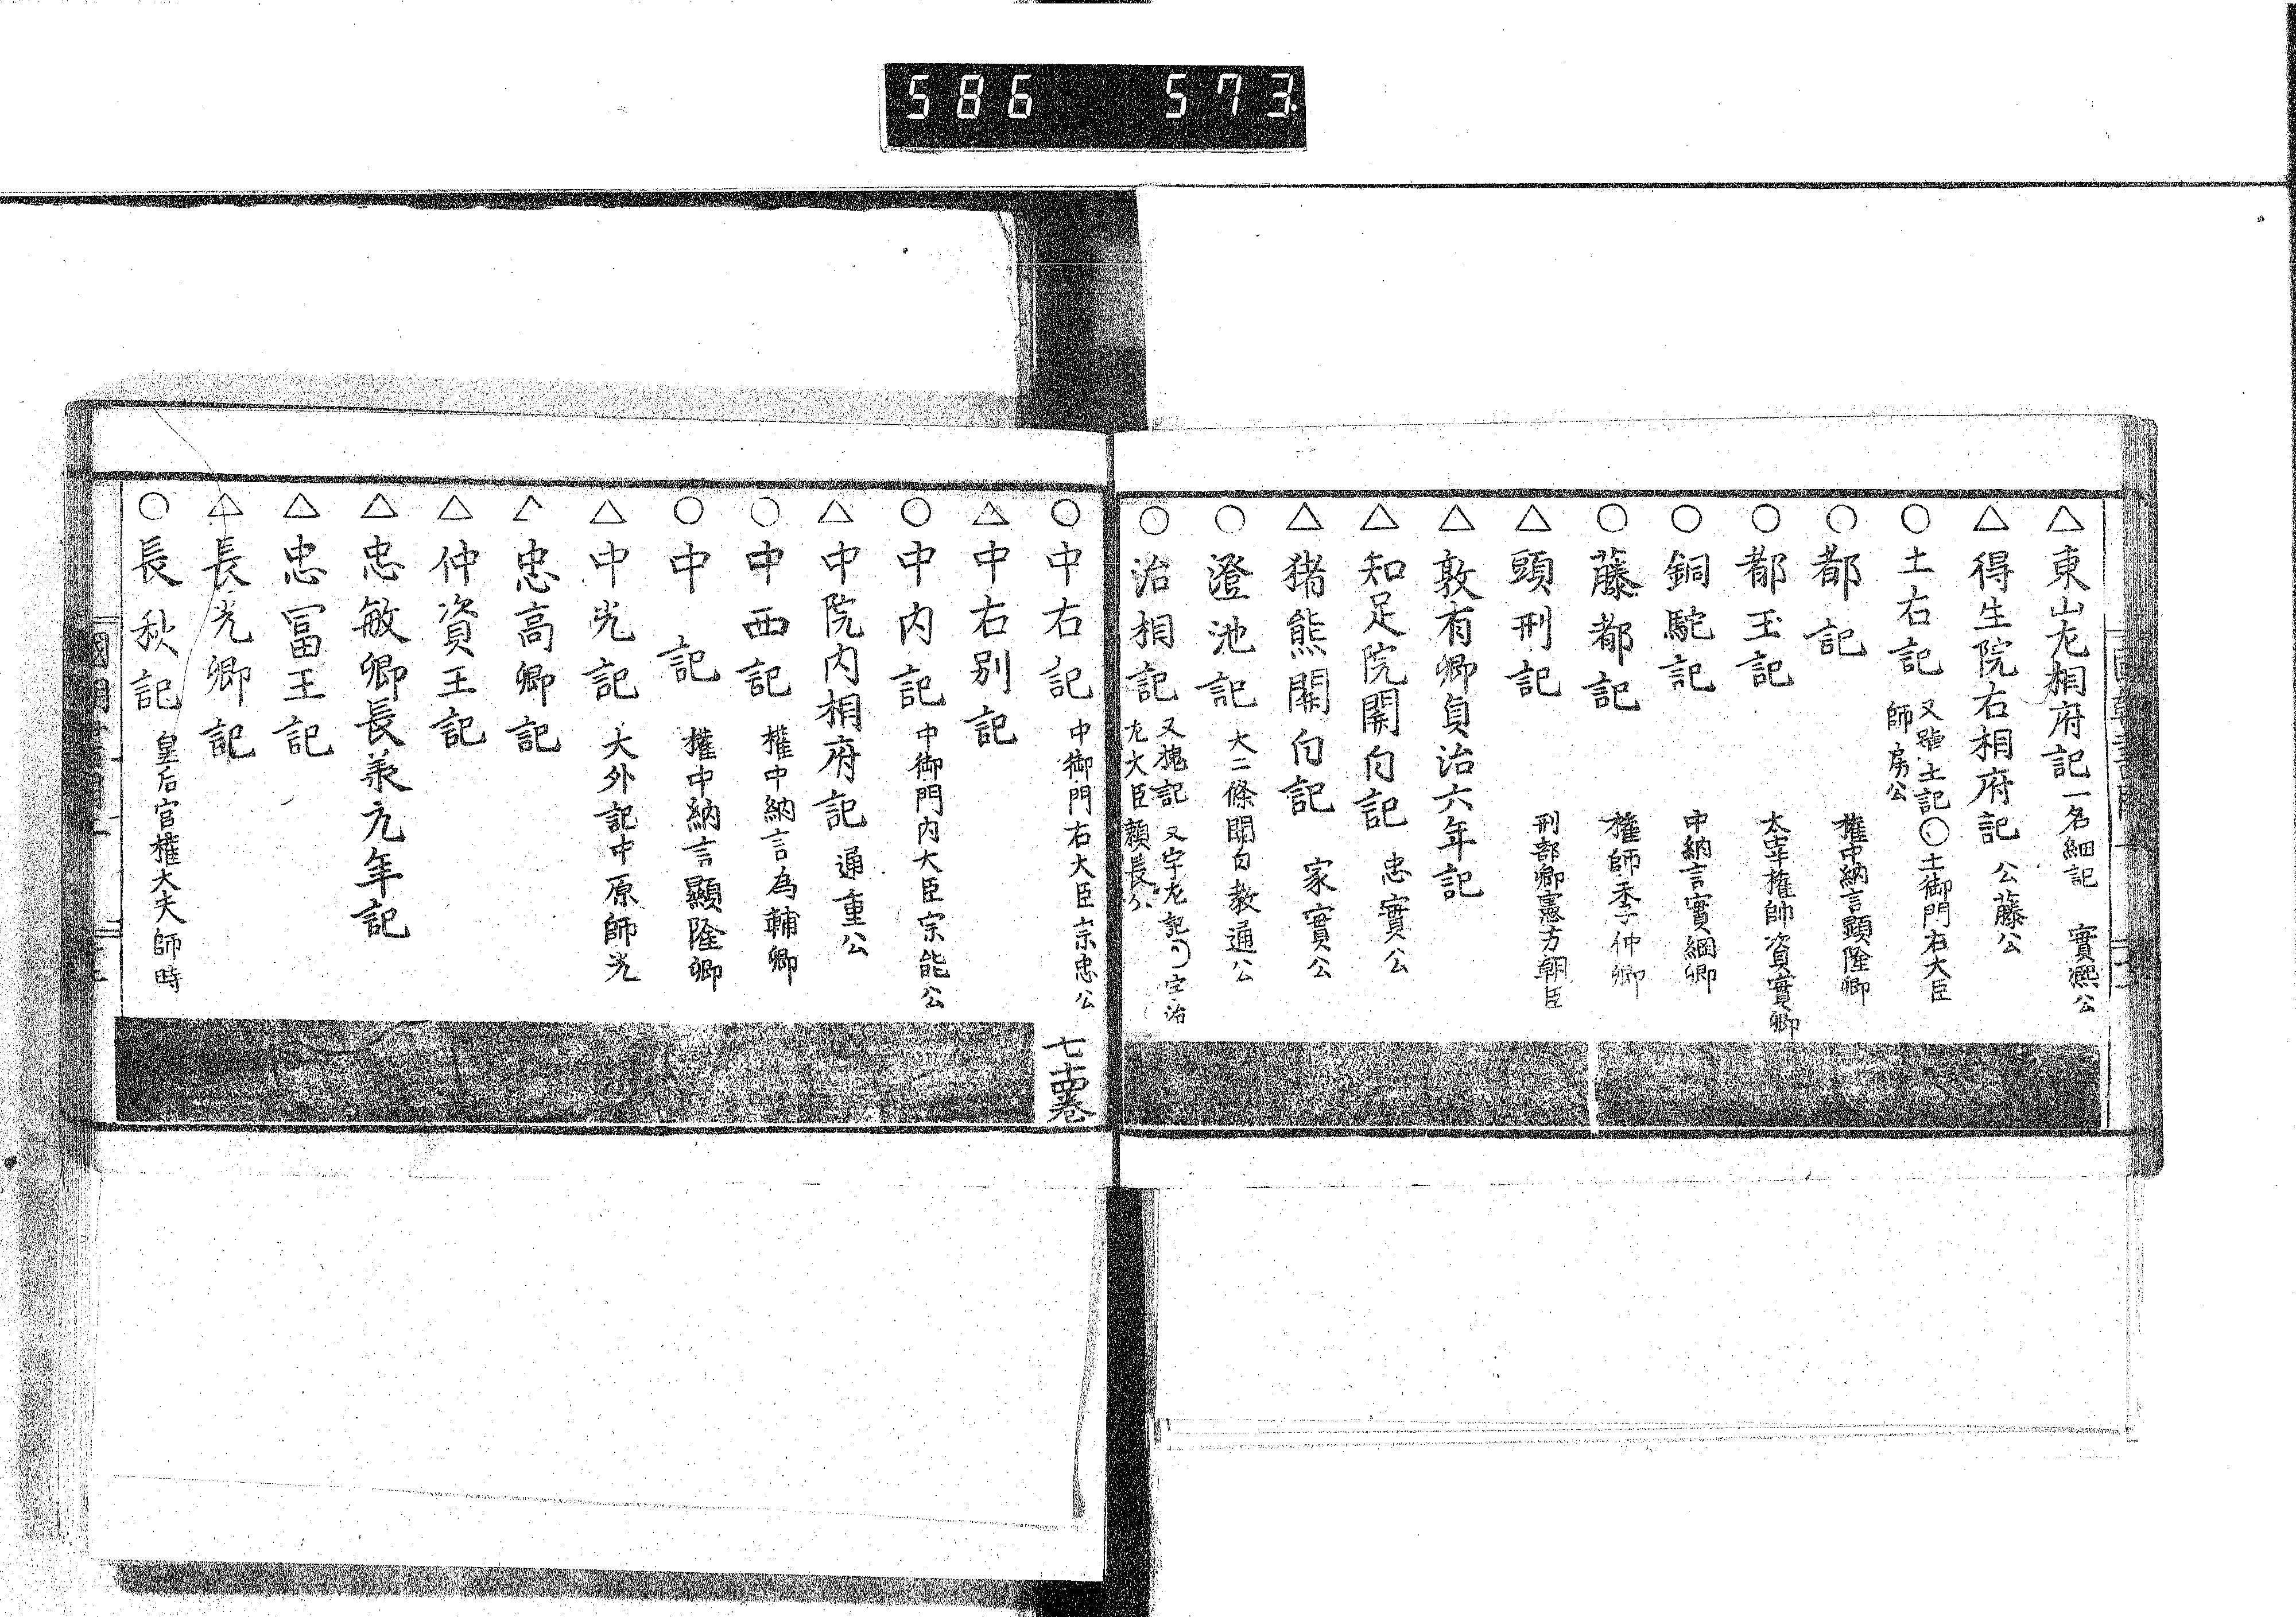 586 573
△東山左相府記 一名細記 實凞公
△得生院右相府記 公藤公
○土右記 又 土記○土御門右大臣
師房公
○都記 權中納言顯隆卿
○都玉記 太宰權帥資實卿
○銅駝記 中納言實綱卿
○藤都記 權師季仲卿
△頭刑記 刑部卿憲方朝臣
△敦有卿貞治六年記
△知足院關白記 忠實公
△猪熊關白記 家實公
○澄池記 大二條關白教通公
○治相記 又槐記 又宇左記 宇治
左大臣頼長公
○中右記 中御門右大臣宗忠公
七十四卷
△中右別記
○中内記 中御門内大臣宗能公
△中院内相府記 通重公
○中西記 權中納言為輔卿
○中記 權中納言顯隆卿
△中光記 大外記中原師光
△忠高卿記
△仲資王記
△忠敏卿長兼九年記
△忠冨王記
△長光卿記
○長秋記 皇后宮權大夫師時